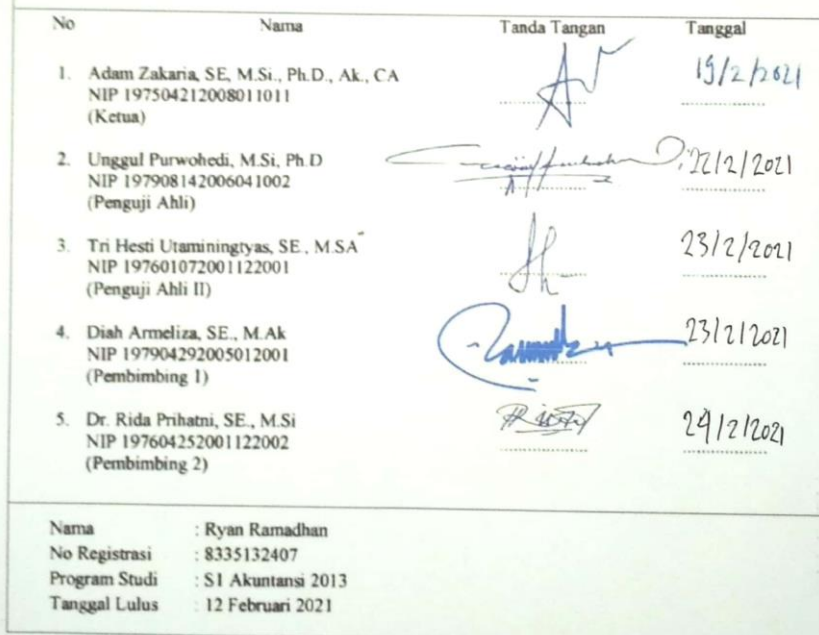 No Nama Tanda Tangan Tanggal
1. Adam Zakaria, SE, M.Si., Ph.D., Ak., CA 19/2/2021
NIP 197504212008011011
(Ketua)
2. Unggul Purwohedi, M.Si, Ph.D 22/2/2021
NIP 197908142006041002
(Penguji Ahli)
3. Tri Hesti Utaminingtyas, SE., M.SA 23/2/2021
NIP 197601072001122001
(Penguji Ahli II)
4. Diah Armeliza, SE., M.Ak 23/2/2021
NIP 197904292005012001
(Pembimbing 1)
5. Dr. Rida Prihatni, SE., M.Si 24/2/2021
NIP 197604252001122002
(Pembimbing 2)
Nama : Ryan Ramadhan
No Registrasi : 8335132407
Program Studi : S1 Akuntansi 2013
Tanggal Lulus : 12 Februari 2021